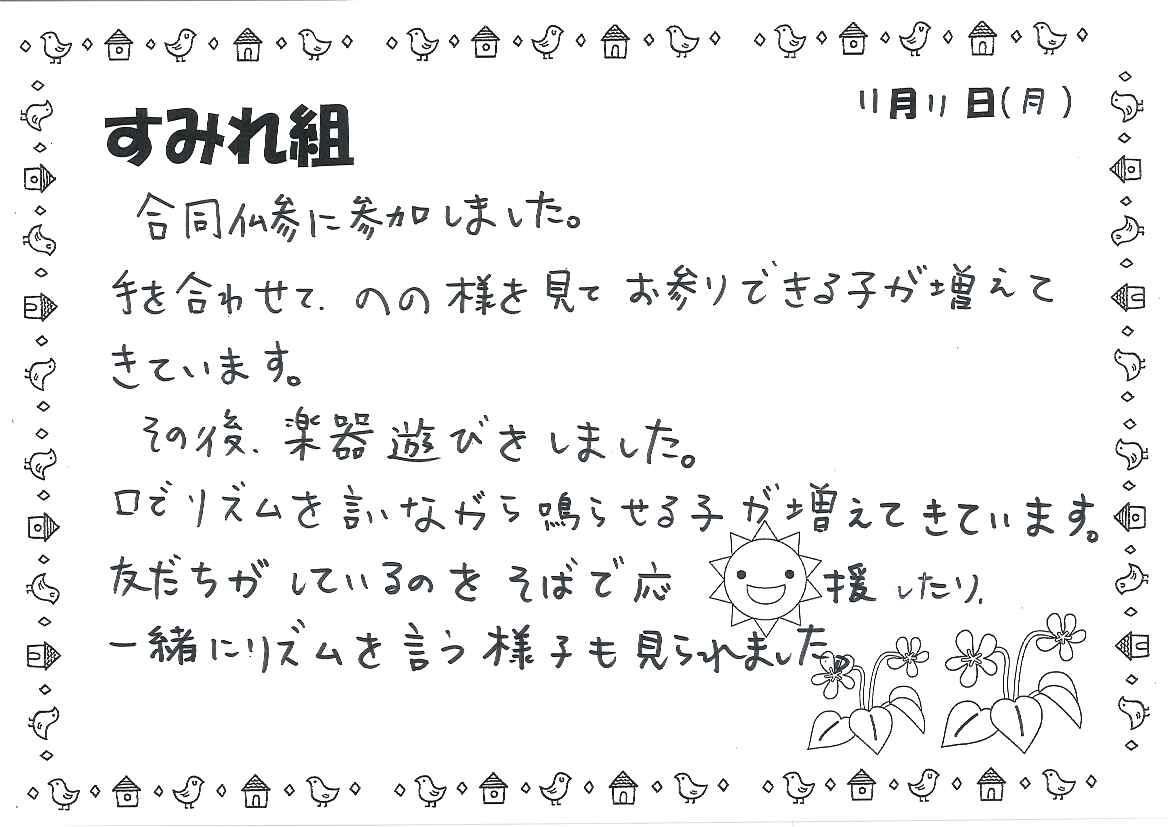 11月11日(月)
すみれ組
合同仏参に参加しました。
手を合わせて、ののの様を見てお参りできる子が増えて
きています。
その後、楽器遊びをしました。
口でリズムを言いながら鳴らせる子が増えてきています。
友だちがしているのをそばで応援したり、
一緒にリズムを言う様子も見られました。